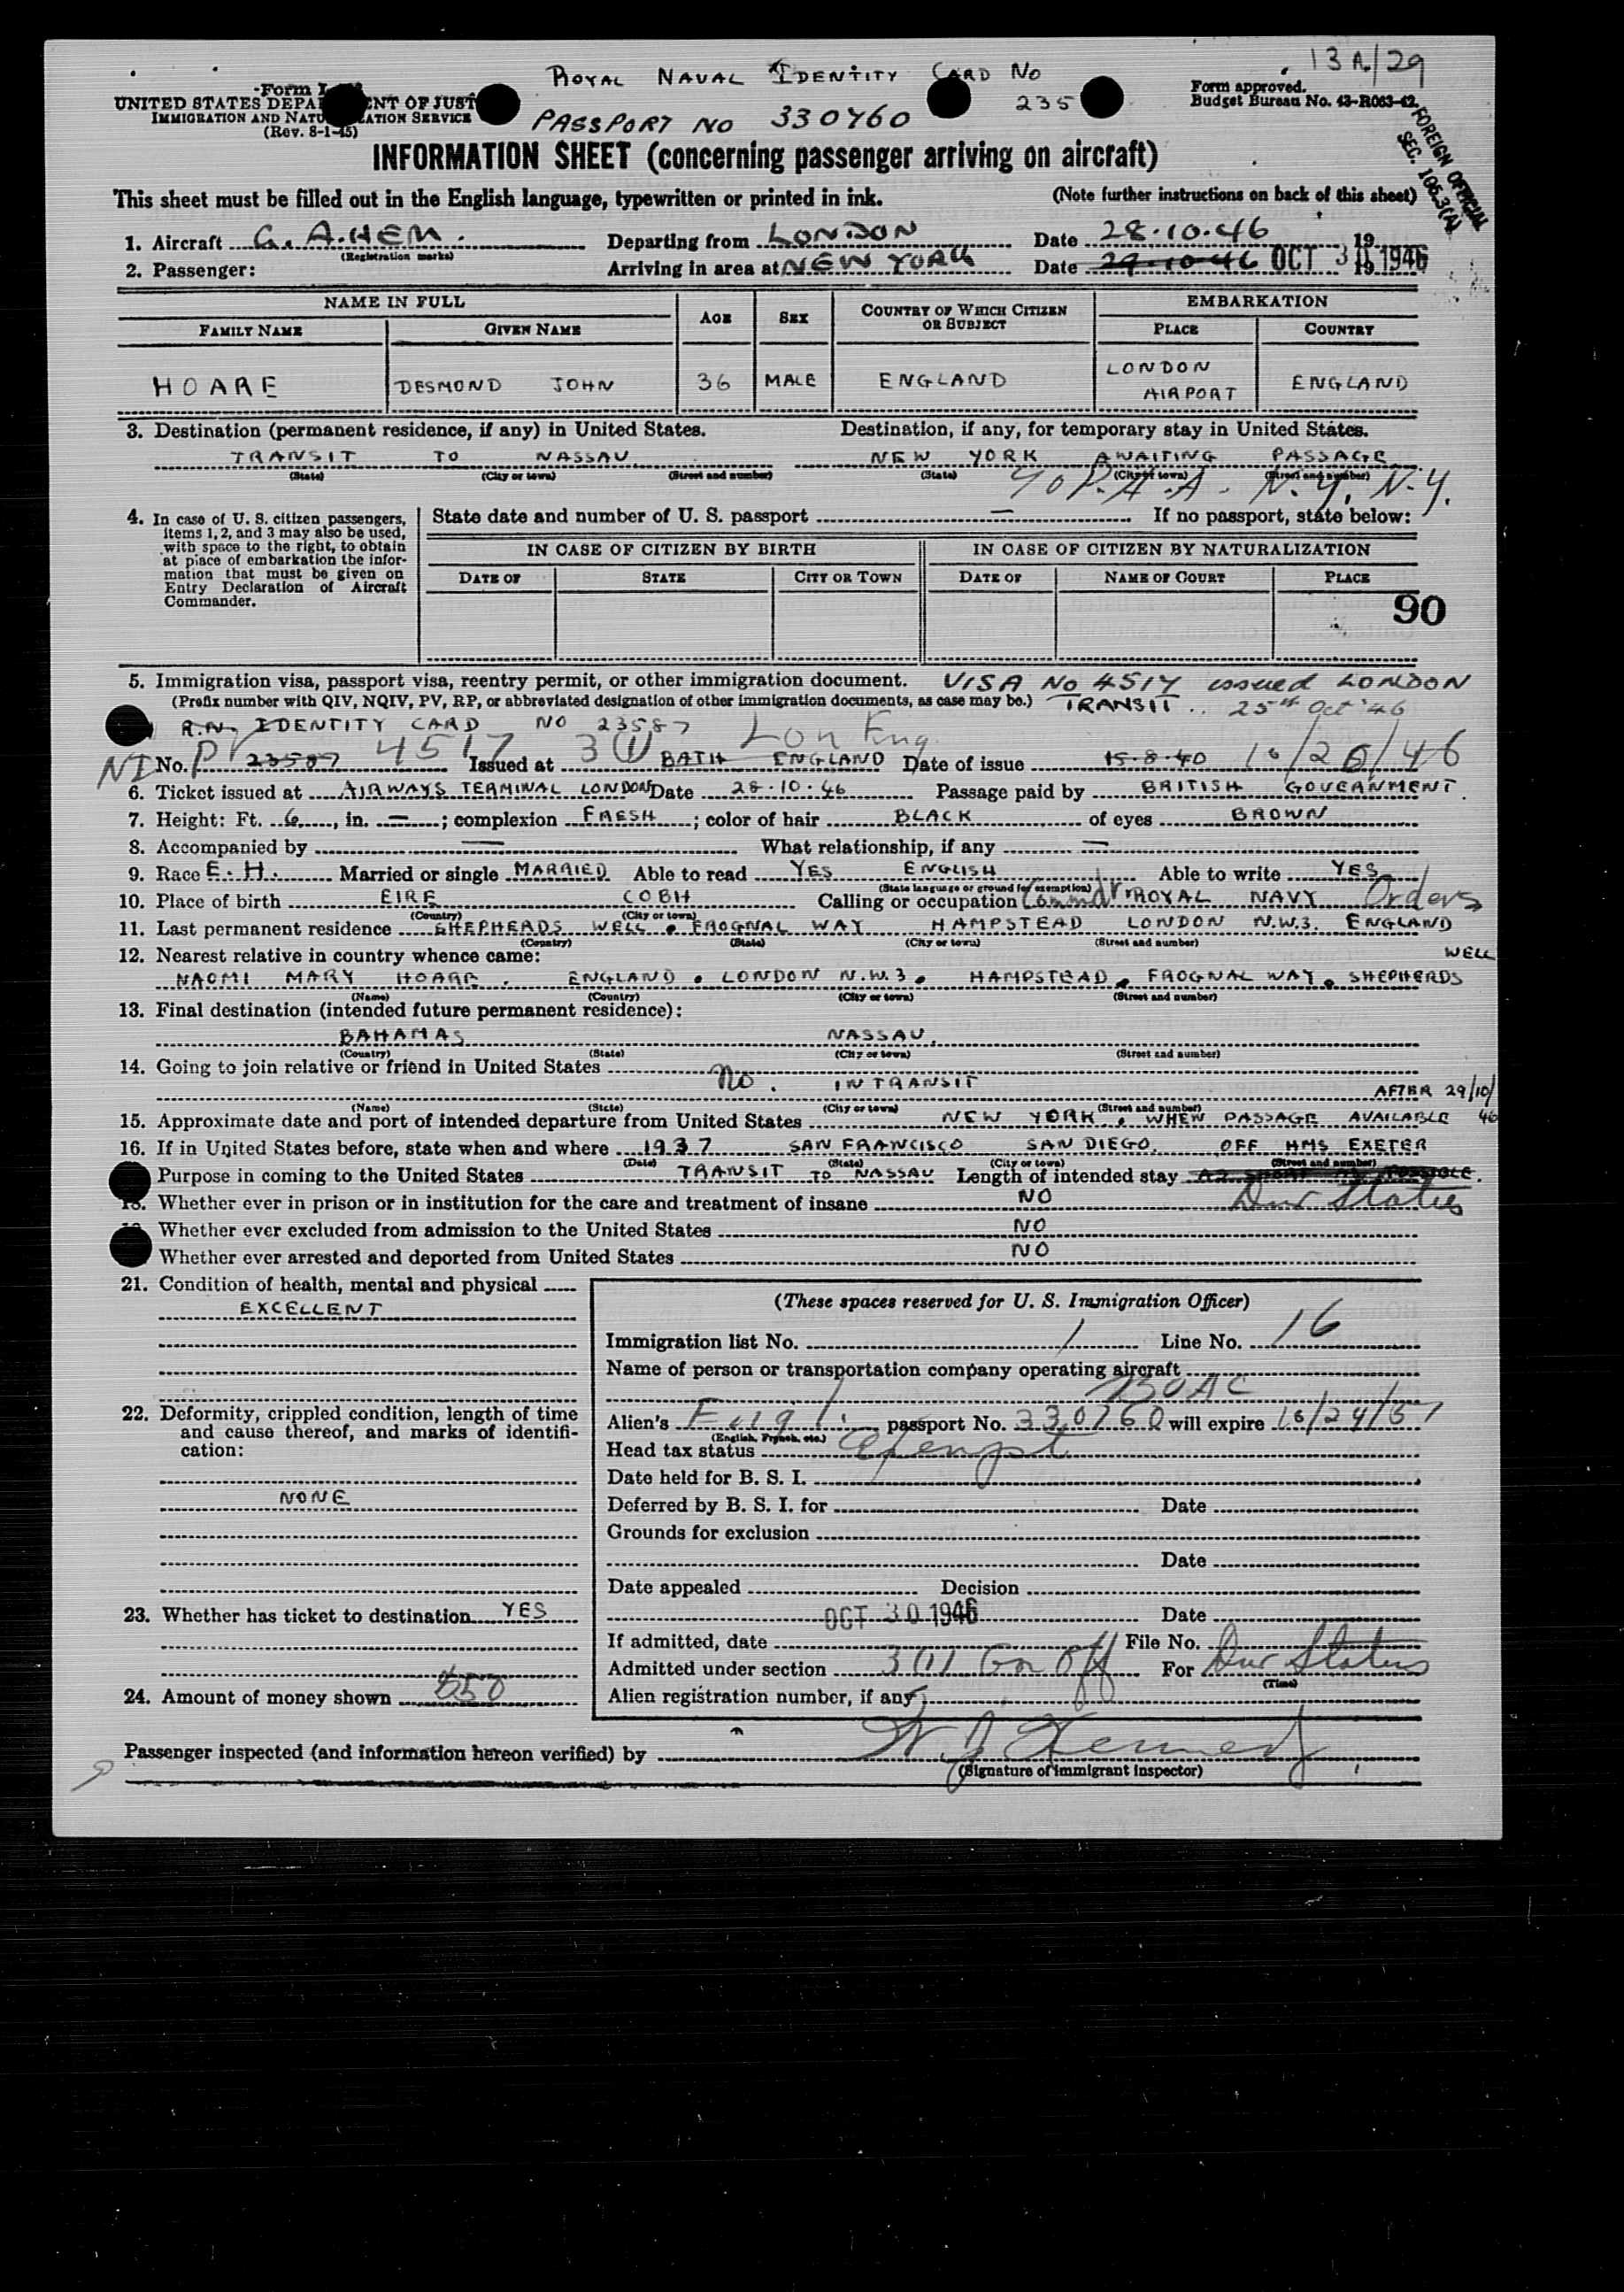 13A/29
ROYAL NAVAL IDENTITY CARD NO
235
PASSPORT NO 330760
Form
UNITED STATES DEPA NT OF JUST
IMMIGRATION AND NATU ATION SERVICE
(Rev. 8-1-45)
Form approved.
Budget Bureau No. 43-R063-42.
FOREIGN OFFICIAL
SEC. 105.3(A)
INFORMATION SHEET (concerning passenger arriving on aircraft)
This sheet must be filled out in the English language, typewritten or printed in ink. (Note further instructions on back of this sheet)
1. Aircraft G. A.HEM. Departing from LONDON Date 28.10.46 19
(Registration marks)
2. Passenger: Arriving in area at NEW YORK Date 29.10.46 OCT 30 1946 19
NAME IN FULL AGE SEX COUNTRY OF WHICH CITIZEN OR SUBJECT EMBARKATION
FAMILY NAME GIVEN NAME PLACE COUNTRY
HOARE DESMOND JOHN 36 MALE ENGLAND LONDON AIRPORT ENGLAND
3. Destination (permanent residence, if any) in United States. Destination, if any, for temporary stay in United States.
TRANSIT TO NASSAU NEW YORK AWAITING PASSAGE
(State) (City or town) (Street and number) (State) (City or town) (Street and number)
P.A.A. N.Y. N.Y.
4. In case of U. S. citizen passengers, items 1, 2, and 3 may also be used, with space to the right, to obtain at place of embarkation the information that must be given on Entry Declaration of Aircraft Commander.
State date and number of U. S. passport — If no passport, state below:
IN CASE OF CITIZEN BY BIRTH IN CASE OF CITIZEN BY NATURALIZATION
DATE OF STATE CITY OR TOWN DATE OF NAME OF COURT PLACE
90
5. Immigration visa, passport visa, reentry permit, or other immigration document. VISA No 4517 issued LONDON
(Prefix number with QIV, NQIV, PV, RP, or abbreviated designation of other immigration documents, as case may be.) TRANSIT .. 25th Oct '46
R.N. IDENTITY CARD NO 23587 Lon Eng
NI No. PV 23587 4517 Issued at 3(1) BATH ENGLAND Date of issue 15.8.40 10/25/46
6. Ticket issued at AIRWAYS TERMINAL LONDON Date 28.10.46 Passage paid by BRITISH GOVERNMENT.
7. Height: Ft. 6, in. —; complexion FRESH; color of hair BLACK of eyes BROWN
8. Accompanied by — What relationship, if any —
9. Race E.H. Married or single MARRIED Able to read YES ENGLISH Able to write YES
(State language or ground for exemption)
10. Place of birth EIRE COBH Calling or occupation Commdr. ROYAL NAVY Orders
(Country) (City or town)
11. Last permanent residence SHEPHERDS WELL . FROGNAL WAY HAMPSTEAD LONDON N.W.3. ENGLAND
(Country) (State) (City or town) (Street and number)
12. Nearest relative in country whence came: WELL
NAOMI MARY HOARE . ENGLAND . LONDON N.W.3 . HAMPSTEAD . FROGNAL WAY . SHEPHERDS
(Name) (Country) (City or town) (Street and number)
13. Final destination (intended future permanent residence):
BAHAMAS NASSAU.
(Country) (State) (City or town) (Street and number)
14. Going to join relative or friend in United States
No. IN TRANSIT
(Name) (State) (City or town) (Street and number) AFTER 29/10/46
15. Approximate date and port of intended departure from United States NEW YORK, WHEN PASSAGE AVAILABLE
16. If in United States before, state when and where 1937 SAN FRANCISCO SAN DIEGO. OFF HMS EXETER
(Date) (State) (City or town) (Street and number)
Purpose in coming to the United States TRANSIT TO NASSAU Length of intended stay AS SHORT AS POSSIBLE.
18. Whether ever in prison or in institution for the care and treatment of insane NO Dur Status
Whether ever excluded from admission to the United States NO
Whether ever arrested and deported from United States NO
21. Condition of health, mental and physical
EXCELLENT
22. Deformity, crippled condition, length of time and cause thereof, and marks of identification:
NONE
23. Whether has ticket to destination YES
24. Amount of money shown $50
(These spaces reserved for U. S. Immigration Officer)
Immigration list No. 1 Line No. 16
Name of person or transportation company operating aircraft
BOAC
Alien's Engl. passport No. 330760 will expire 10/24/51
(English, French, etc.)
Head tax status Exempt
Date held for B. S. I.
Deferred by B. S. I. for Date
Grounds for exclusion
Date
Date appealed Decision
OCT 30 1946 Date
If admitted, date File No.
Admitted under section 3(1) Gov Off For Dur Status
(Time)
Alien registration number, if any
Passenger inspected (and information hereon verified) by W J Kennedy
(Signature of immigrant inspector)